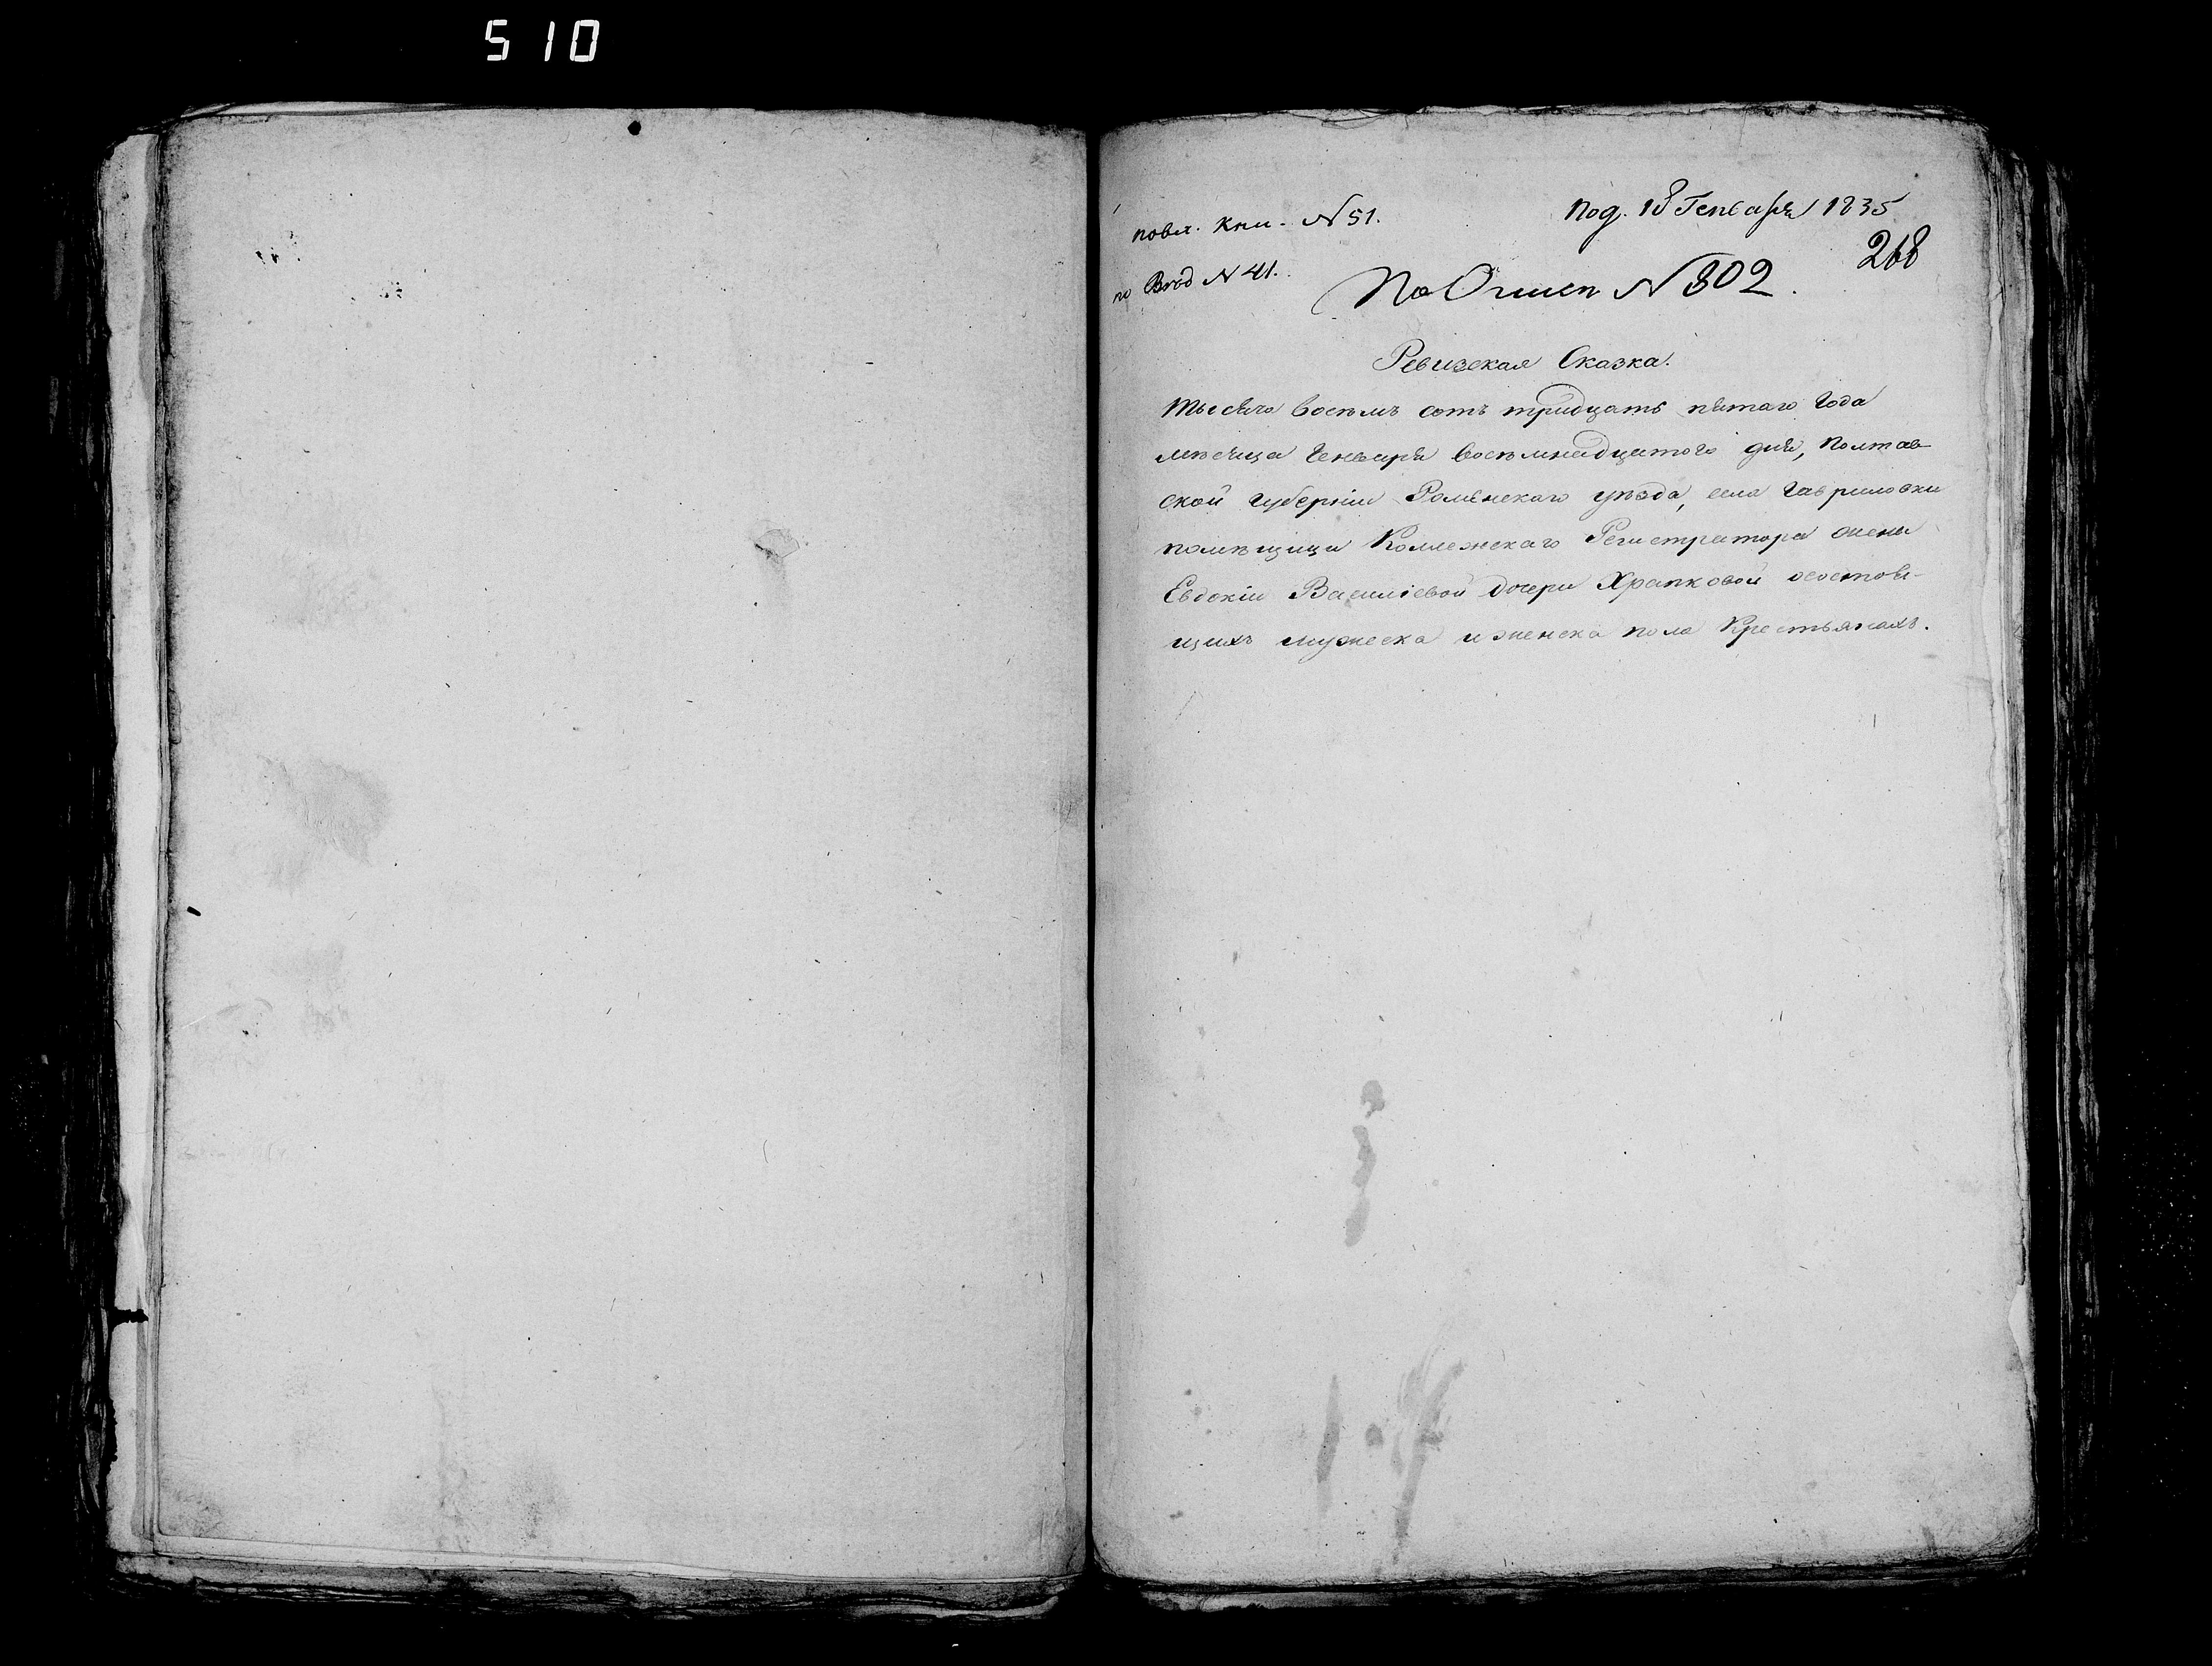 510
Под. 18 Генваря 1835
повл. кни. N 51.
268
по Вход N 41.
По Описи N 302.
Ревизская Сказка.
Тысяча восемъ сотъ тридцать пятаго года
мѣсяца Генваря восемнадцатого дня, Полтав
ской губерніи Роменскаго уѣзда, села Гавриловки
помѣщици Коллежскаго Регистратора жены
Евдокіи Василіевой дочери Храпковой осостоя-
щихъ мужеска и женска пола Крестьянахъ.